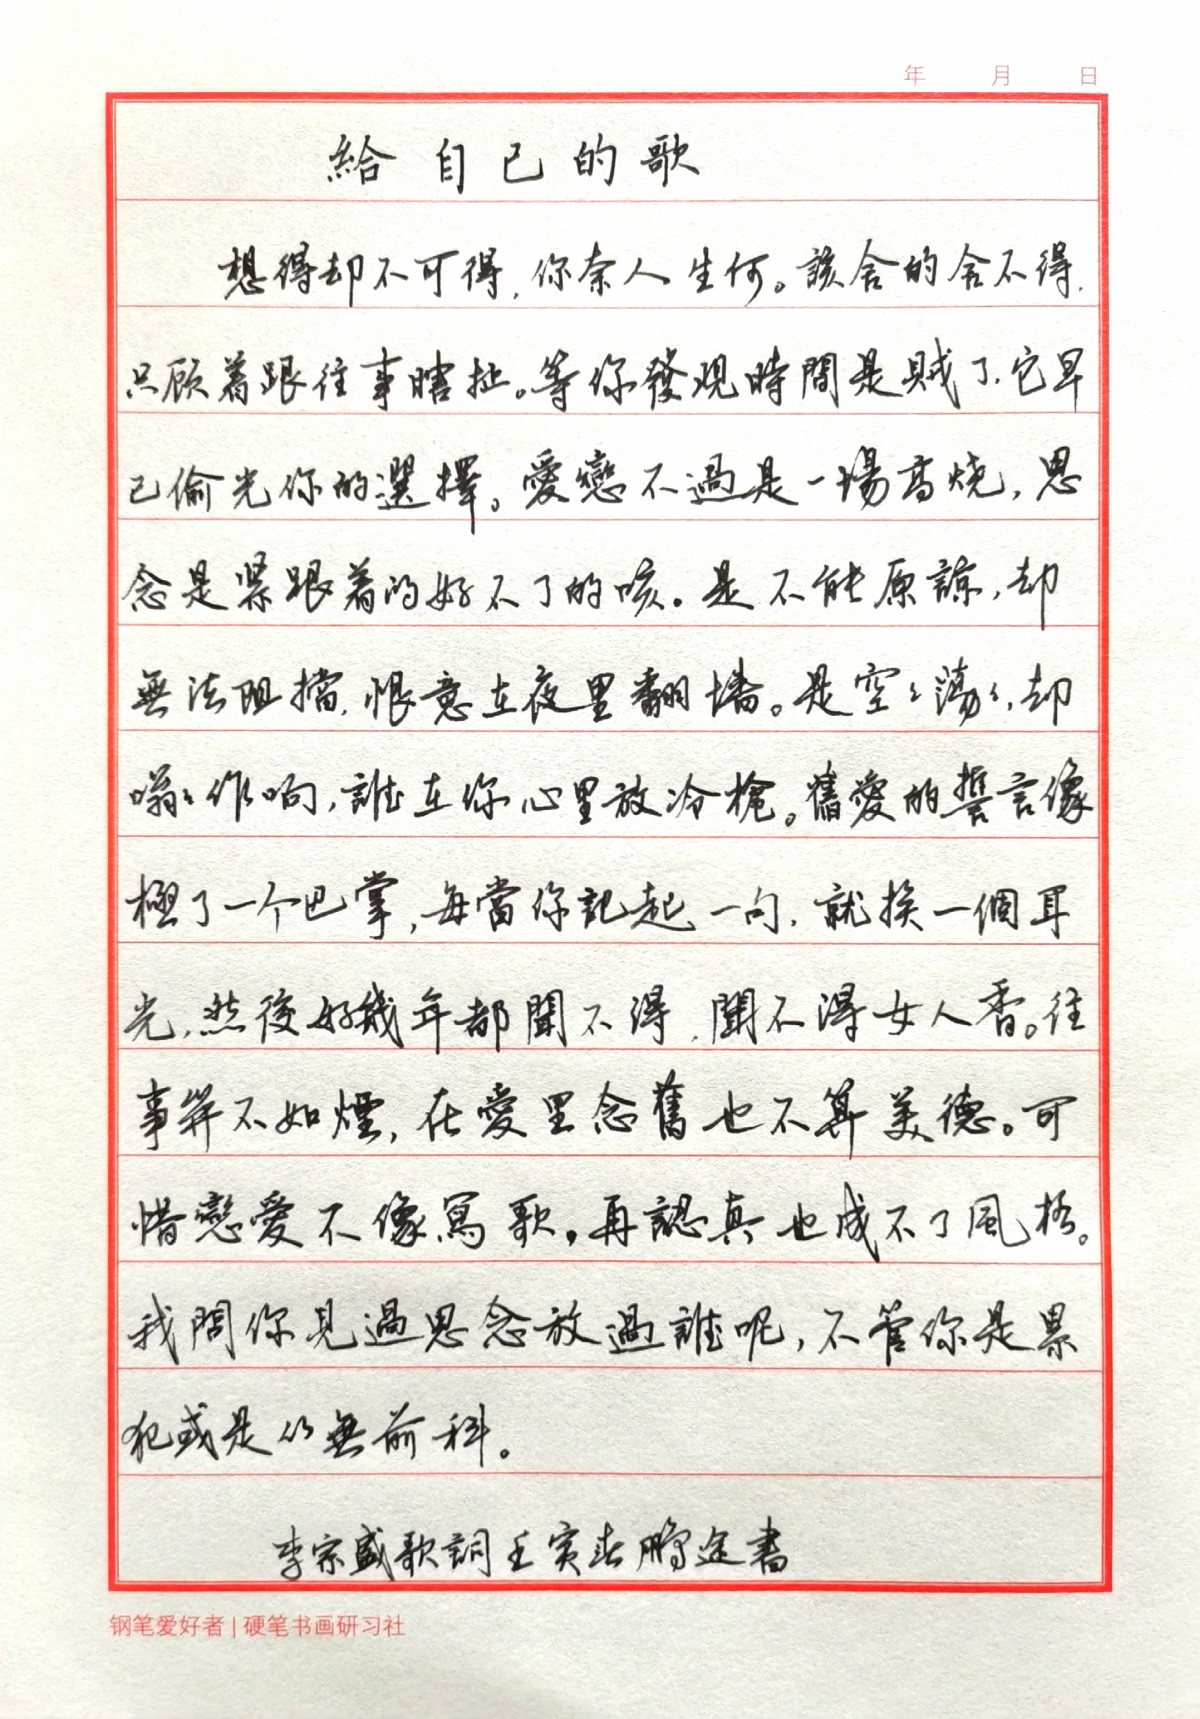 年 月 日
給自己的歌
想得却不可得，你奈人生何。該舍的舍不得，
只顧着跟往事瞎扯。等你發现時間是賊了，它早
已偷光你的選擇。愛戀不過是一場高烧，思
念是緊跟着的好不了的咳。是不能原諒，却
無法阻擋，恨意在夜里翻墻。是空〻蕩〻，却
嗡〻作响，誰在你心里放冷槍。舊愛的誓言像
極了一个巴掌，每當你記起一句，就挨一個耳
光，然後好幾年都聞不得，聞不得女人香。往
事并不如煙，在愛里念舊也不算美德。可
惜戀愛不像寫歌，再認真也成不了風格。
我問你見過思念放過誰呢，不管你是累
犯或是从無前科。
李宗盛歌詞壬寅春鵬途書
钢笔爱好者 | 硬笔书画研习社